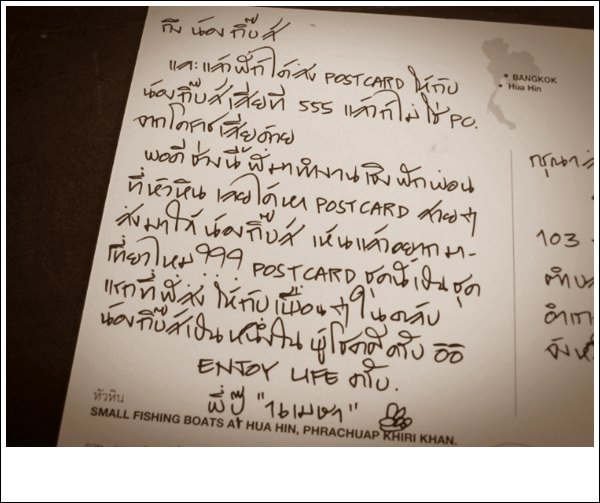 ถึง น้องกิ๊บส์
และแล้วพี่ก็ได้ส่ง POSTCARD ให้กับ
น้องกิ๊บส์เสียที 555 แล้วก็ไม่ใช่ PC.
จากโคราชเสียด้วย
พอดีช่วงนี้พี่มาทำงานเชิงพักผ่อน
ที่หัวหิน เลยได้หา POSTCARD สวยๆ
ส่งมาให้น้องกิ๊บส์ เห็นแล้วอยากมา-
เที่ยวไหม ๆๆๆ POSTCARD ชุดนี้เป็นชุด
แรกที่พี่ส่งให้กับเพื่อนๆ ในคลับ
น้องกิ๊บส์เป็นหนึ่งใน ผู้โชคดีครับ อิอิ
ENJOY LIFE ครับ.
พี่ปุ๊ "านเมษา"
หัวหิน
SMALL FISHING BOATS AT HUA HIN, PHRACHUAP KHIRI KHAN.
BANGKOK
Hua Hin
กรุณาส่
103
ตำบล
อำเภ
จังห